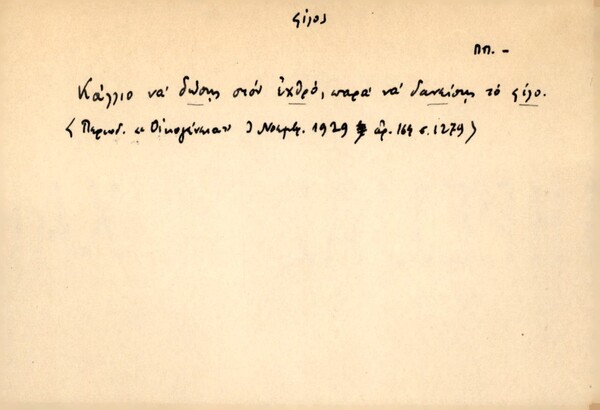 φίλος
ΠΠ. -
Κάλλιο νά δώσης στόν ἐχθρό, παρά νά δανείσης τό φίλο.
(Περιοδ. "Οἰκογένεια" Νοεμβ. 1929 ἀρ. 164 σ. 1279)